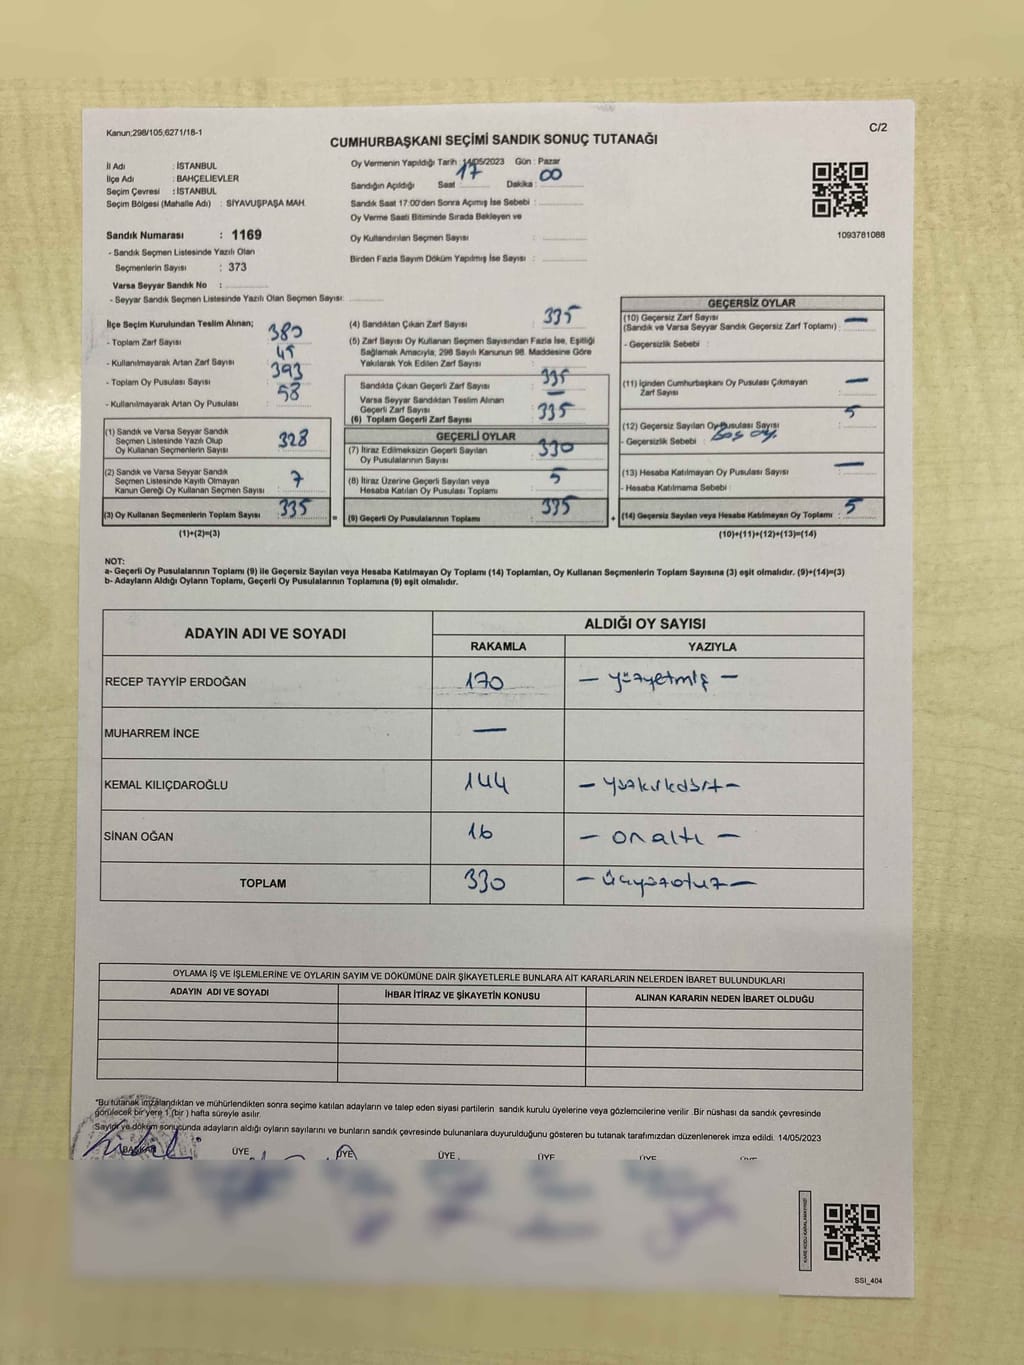 Kanun;298/105;6271/18-1
C/2
CUMHURBAŞKANI SEÇİMİ SANDIK SONUÇ TUTANAĞI
İl Adı : İSTANBUL
İlçe Adı : BAHÇELİEVLER
Seçim Çevresi : İSTANBUL
Seçim Bölgesi (Mahalle Adı) : SİYAVUŞPAŞA MAH.
Sandık Numarası : 1169
- Sandık Seçmen Listesinde Yazılı Olan
Seçmenlerin Sayısı : 373
Varsa Seyyar Sandık No :
- Seyyar Sandık Seçmen Listesinde Yazılı Olan Seçmen Sayısı:
Oy Vermenin Yapıldığı Tarih : 14/05/2023 Gün : Pazar
Sandığın Açıldığı Saat : 17 Dakika : 00
Sandık Saat 17:00'den Sonra Açımış İse Sebebi :
Oy Verme Saati Bitiminde Sırada Bekleyen ve
Oy Kullandırılan Seçmen Sayısı :
Birden Fazla Sayım Döküm Yapılmış İse Sayısı :
1093781088
İlçe Seçim Kurulundan Teslim Alınan;
- Toplam Zarf Sayısı : 380
- Kullanılmayarak Artan Zarf Sayısı : 45
- Toplam Oy Pusulası Sayısı : 393
- Kullanılmayarak Artan Oy Pusulası : 58
(1) Sandık ve Varsa Seyyar Sandık
Seçmen Listesinde Yazılı Olup
Oy Kullanan Seçmenlerin Sayısı : 328
(2) Sandık ve Varsa Seyyar Sandık
Seçmen Listesinde Kayıtlı Olmayan
Kanun Gereği Oy Kullanan Seçmen Sayısı : 7
(3) Oy Kullanan Seçmenlerin Toplam Sayısı : 335
(1)+(2)=(3)
(4) Sandıktan Çıkan Zarf Sayısı : 335
(5) Zarf Sayısı Oy Kullanan Seçmen Sayısından Fazla İse, Eşitliği
Sağlamak Amacıyla, 298 Sayılı Kanunun 98. Maddesine Göre
Yakılarak Yok Edilen Zarf Sayısı :
Sandıkta Çıkan Geçerli Zarf Sayısı : 335
Varsa Seyyar Sandıktan Teslim Alınan
Geçerli Zarf Sayısı : —
(6) Toplam Geçerli Zarf Sayısı : 335
GEÇERLİ OYLAR
(7) İtiraz Edilmeksizin Geçerli Sayılan
Oy Pusulalarının Sayısı : 330
(8) İtiraz Üzerine Geçerli Sayılan veya
Hesaba Katılan Oy Pusulası Toplamı : 5
= (9) Geçerli Oy Pusulalarının Toplamı : 335
GEÇERSİZ OYLAR
(10) Geçersiz Zarf Sayısı
(Sandık ve Varsa Seyyar Sandık Geçersiz Zarf Toplamı) : —
- Geçersizlik Sebebi :
(11) İçinden Cumhurbaşkanı Oy Pusulası Çıkmayan
Zarf Sayısı : —
(12) Geçersiz Sayılan Oy Pusulası Sayısı : 5
- Geçersizlik Sebebi : Boş oy.
(13) Hesaba Katılmayan Oy Pusulası Sayısı : —
- Hesaba Katılmama Sebebi :
+ (14) Geçersiz Sayılan veya Hesaba Katılmayan Oy Toplamı : 5
(10)+(11)+(12)+(13)=(14)
NOT:
a- Geçerli Oy Pusulalarının Toplamı (9) ile Geçersiz Sayılan veya Hesaba Katılmayan Oy Toplamı (14) Toplamları, Oy Kullanan Seçmenlerin Toplam Sayısına (3) eşit olmalıdır. (9)+(14)=(3)
b- Adayların Aldığı Oyların Toplamı, Geçerli Oy Pusulalarının Toplamına (9) eşit olmalıdır.
ADAYIN ADI VE SOYADI
ALDIĞI OY SAYISI
RAKAMLA YAZIYLA
RECEP TAYYİP ERDOĞAN 170 — yüzyetmiş —
MUHARREM İNCE —
KEMAL KILIÇDAROĞLU 144 — yüzkırkdört —
SİNAN OĞAN 16 — onaltı —
TOPLAM 330 — üçyüzotuz —
OYLAMA İŞ VE İŞLEMLERİNE VE OYLARIN SAYIM VE DÖKÜMÜNE DAİR ŞİKAYETLERLE BUNLARA AİT KARARLARIN NELERDEN İBARET BULUNDUKLARI
ADAYIN ADI VE SOYADI İHBAR İTİRAZ VE ŞİKAYETİN KONUSU ALINAN KARARIN NEDEN İBARET OLDUĞU
"Bu tutanak imzalandıktan ve mühürlendikten sonra seçime katılan adayların ve talep eden siyasi partilerin sandık kurulu üyelerine veya gözlemcilerine verilir .Bir nüshası da sandık çevresinde
görülecek bir yere 1 (bir ) hafta süreyle asılır.
Sayım ve döküm sonucunda adayların aldığı oyların sayılarını ve bunların sandık çevresinde bulunanlara duyurulduğunu gösteren bu tutanak tarafımızdan düzenlenerek imza edildi. 14/05/2023
BAŞKAN ÜYE ÜYE ÜYE ÜYE ÜYE
SSI_404